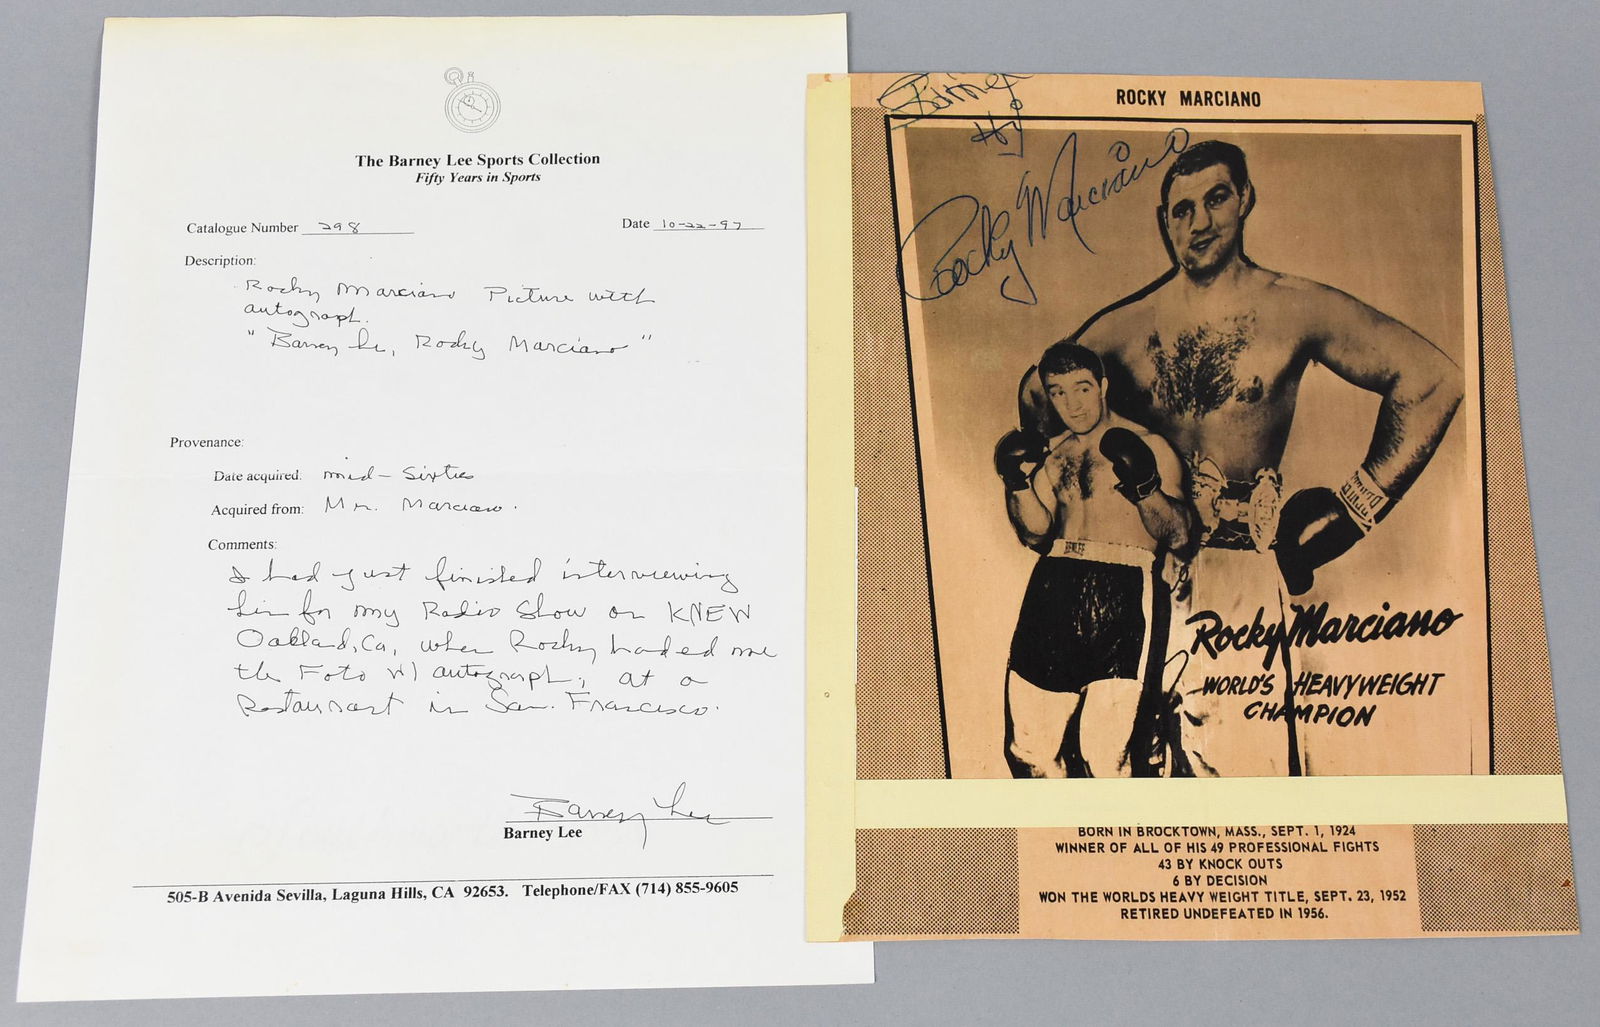 The Barney Lee Sports Collection
Fifty Years in Sports
Catalogue Number 298
Date 10-22-97
Description:
Rocky Marciano Picture with
autograph.
"Barney Lee, Rocky Marciano"
Provenance:
Date acquired: mid-Sixties
Acquired from: Mr. Marciano.
Comments:
I had just finished interviewing
him for my Radio Show on KNEW
Oakland, Ca, when Rocky handed me
the Foto w/ autograph, at a
Restaurant in San. Francisco.
Barney Lee
Barney Lee
505-B Avenida Sevilla, Laguna Hills, CA 92653. Telephone/FAX (714) 855-9605
ROCKY MARCIANO
Rocky Marciano
BENLEE
Rocky Marciano
WORLD'S HEAVYWEIGHT
CHAMPION
BORN IN BROCKTOWN, MASS., SEPT. 1, 1924
WINNER OF ALL OF HIS 49 PROFESSIONAL FIGHTS
43 BY KNOCK OUTS
6 BY DECISION
WON THE WORLDS HEAVY WEIGHT TITLE, SEPT. 23, 1952
RETIRED UNDEFEATED IN 1956.